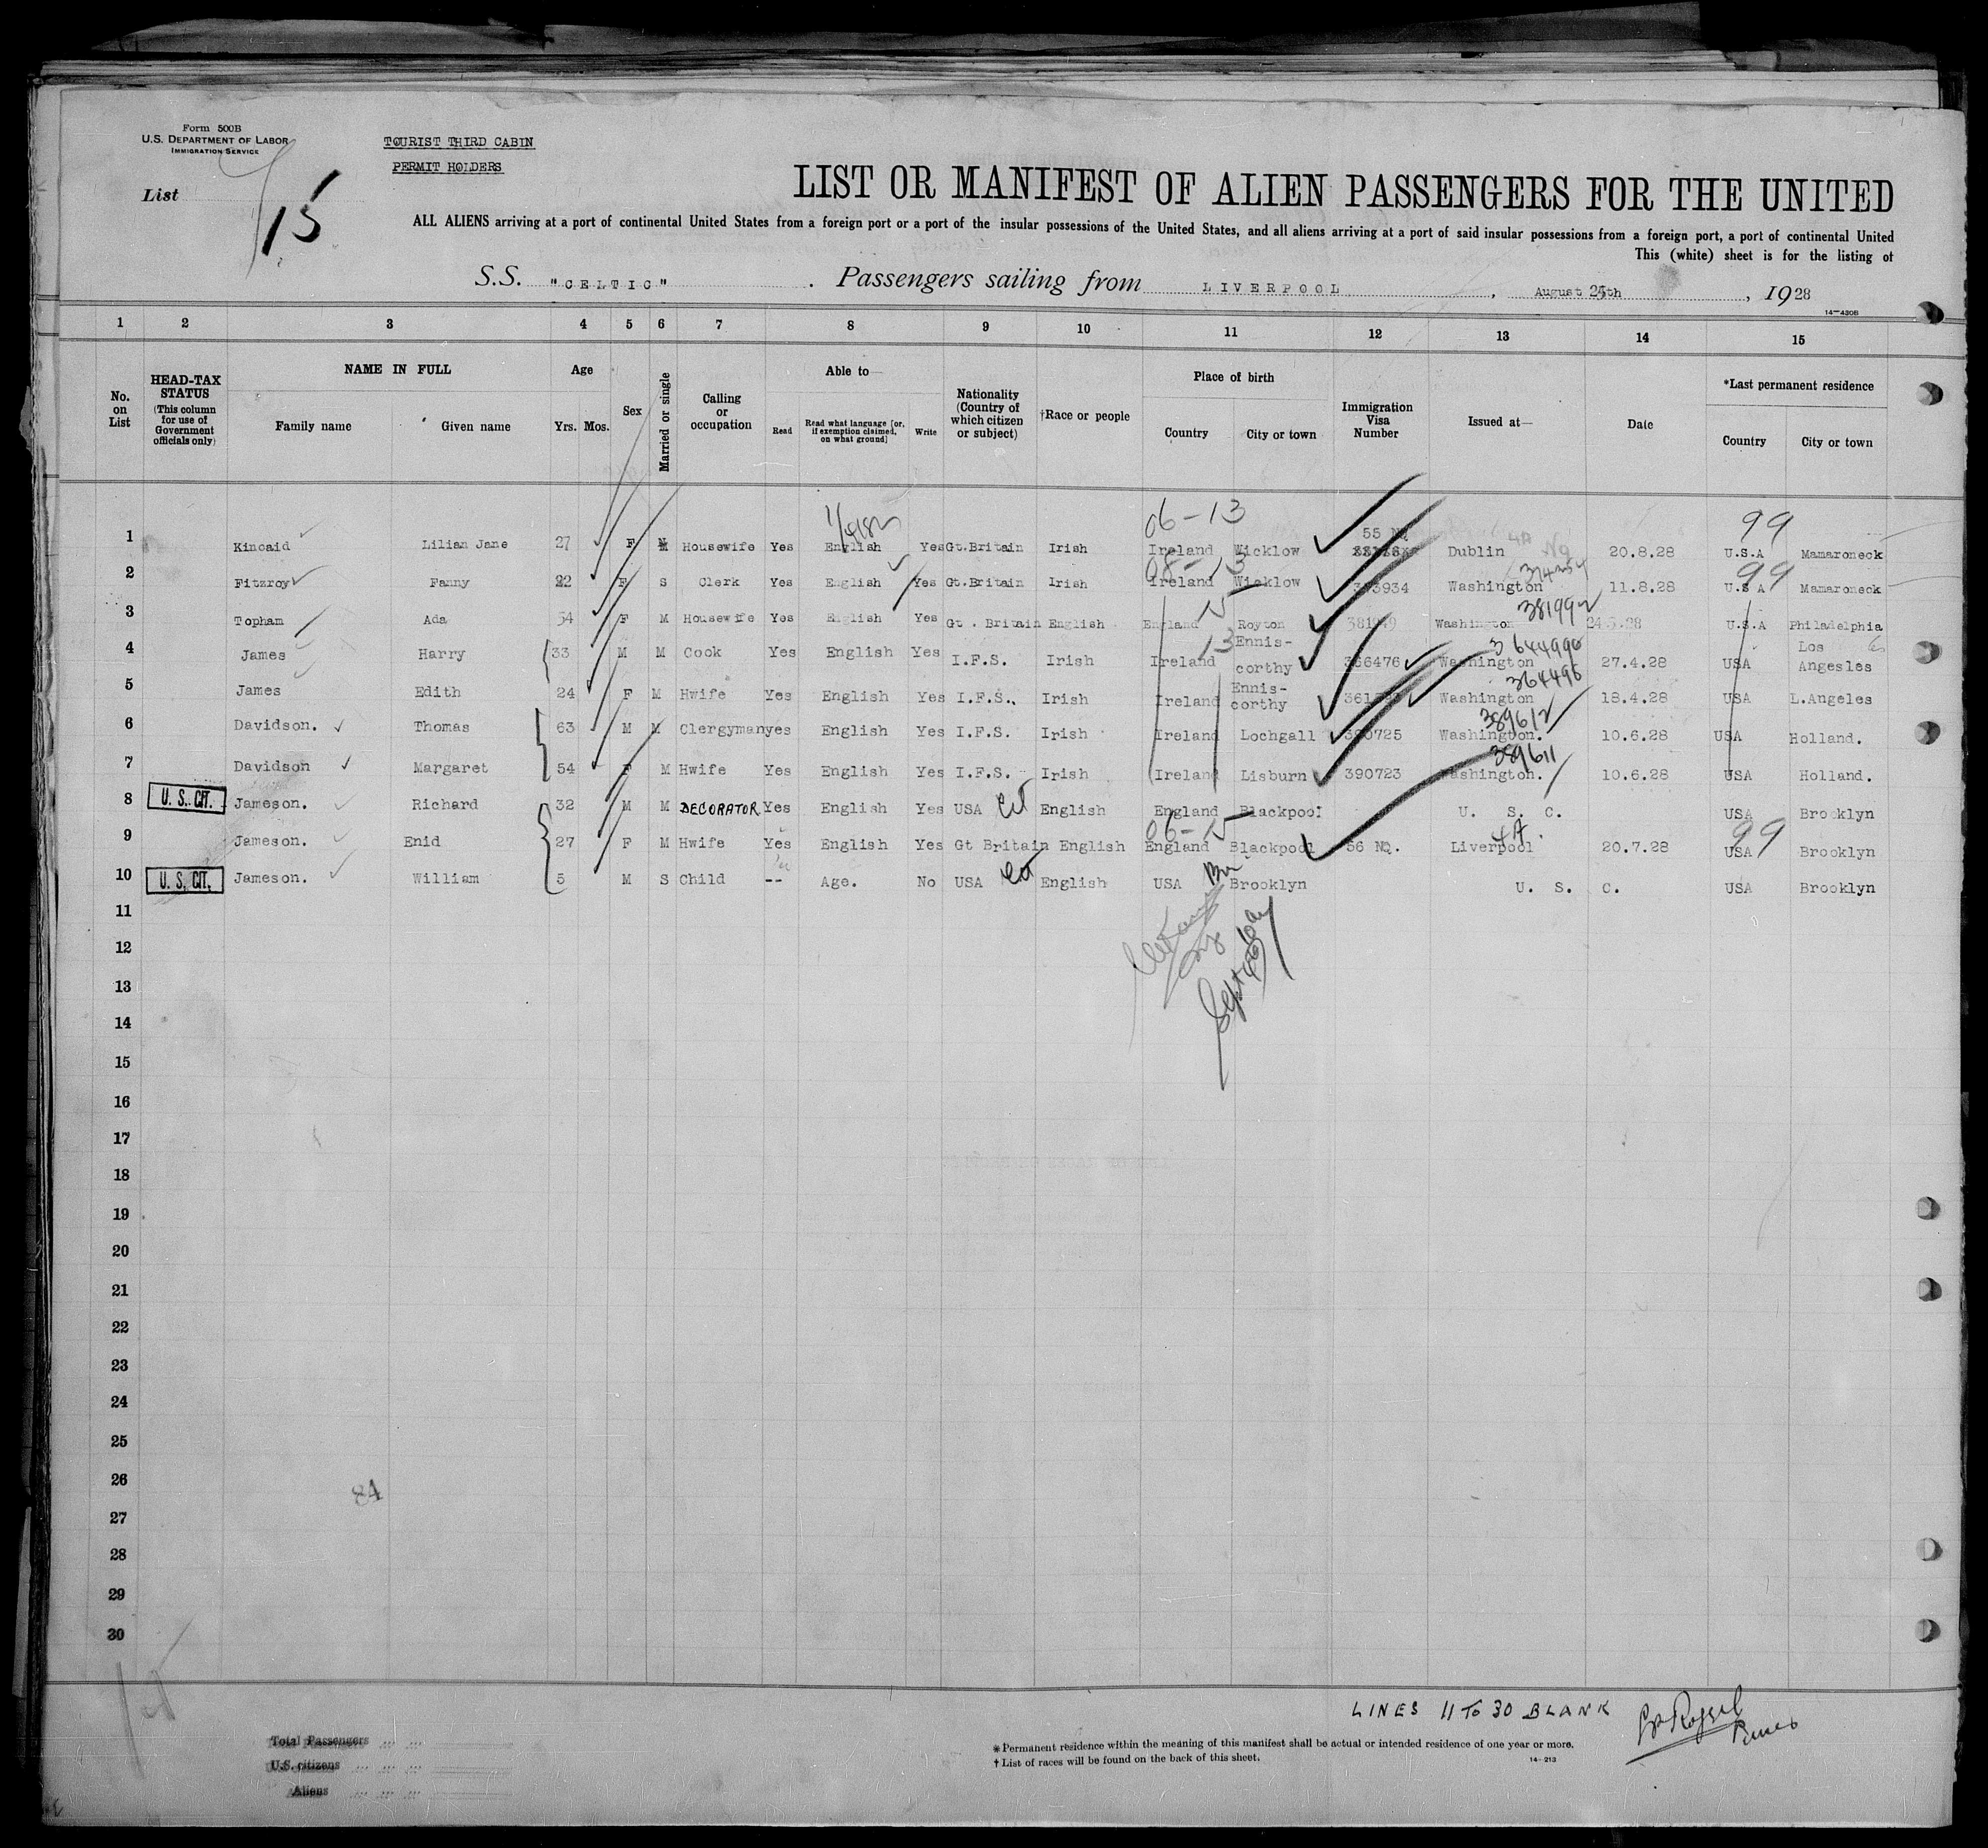 Form 500B
U.S. DEPARTMENT OF LABOR
IMMIGRATION SERVICE
TOURIST THIRD CABIN
PERMIT HOLDERS
List 15
LIST OR MANIFEST OF ALIEN PASSENGERS FOR THE UNITED
ALL ALIENS arriving at a port of continental United States from a foreign port or a port of the insular possessions of the United States, and all aliens arriving at a port of said insular possessions from a foreign port, a port of continental United
This (white) sheet is for the listing of
S.S. "CELTIC" . Passengers sailing from LIVERPOOL , August 25th , 1928
14—430B
1 2 3 4 5 6 7 8 9 10 11 12 13 14 15
No. on List
HEAD-TAX STATUS (This column for use of Government officials only)
NAME IN FULL
Family name Given name
Age
Yrs. Mos.
Sex
Married or single
Calling or occupation
Able to—
Read Read what language [or, if exemption claimed, on what ground] Write
Nationality (Country of which citizen or subject)
†Race or people
Place of birth
Country City or town
Immigration Visa Number
Issued at—
Date
*Last permanent residence
Country City or town
06-13 99
1 Kincaid Lilian Jane 27 F M Housewife Yes English Yes Gt.Britain Irish Ireland Wicklow 55 NQ Dublin 4A NQ 20.8.28 U.S.A Mamaroneck
2 Fitzroy Fanny 22 F S Clerk Yes English Yes Gt.Britain Irish Ireland Wicklow Washington 11.8.28 U.S A 99 Mamaroneck
3 Topham Ada 54 F M Housewife Yes English Yes Gt. Britain English England Royton Washington 381992 U.S.A Philadelphia
4 James Harry 33 M M Cook Yes English Yes I.F.S. Irish Ireland 13 Ennis-corthy 366476 Washington 27.4.28 USA Los Angesles
5 James Edith 24 F M Hwife Yes English Yes I.F.S. Irish Ireland Ennis-corthy Washington 364496 18.4.28 USA L.Angeles
6 Davidson. Thomas 63 M M Clergyman yes English Yes I.F.S. Irish Ireland Lochgall 390725 Washington. 389612 10.6.28 USA Holland.
7 Davidson Margaret 54 F M Hwife Yes English Yes I.F.S. Irish Ireland Lisburn 390723 Washington. 389611 10.6.28 USA Holland.
8 U.S. CIT. Jameson. Richard 32 M M DECORATOR Yes English Yes USA English England Blackpool U. S. C. USA Brooklyn
9 Jameson. Enid 27 F M Hwife Yes English Yes Gt Britain English 06- England Blackpool 56 NQ. Liverpool 4A. 20.7.28 USA 99 Brooklyn
10 U.S. CIT. Jameson. William 5 M S Child -- Age. No USA English USA Brooklyn U. S. C. USA Brooklyn
11
12
13
14
15
16
17
18
19
20
21
22
23
24
25
26
84
27
28
29
30
LINES 11 TO 30 BLANK
Total Passengers
U.S. citizens
Aliens
*Permanent residence within the meaning of this manifest shall be actual or intended residence of one year or more.
†List of races will be found on the back of this sheet.
14-213